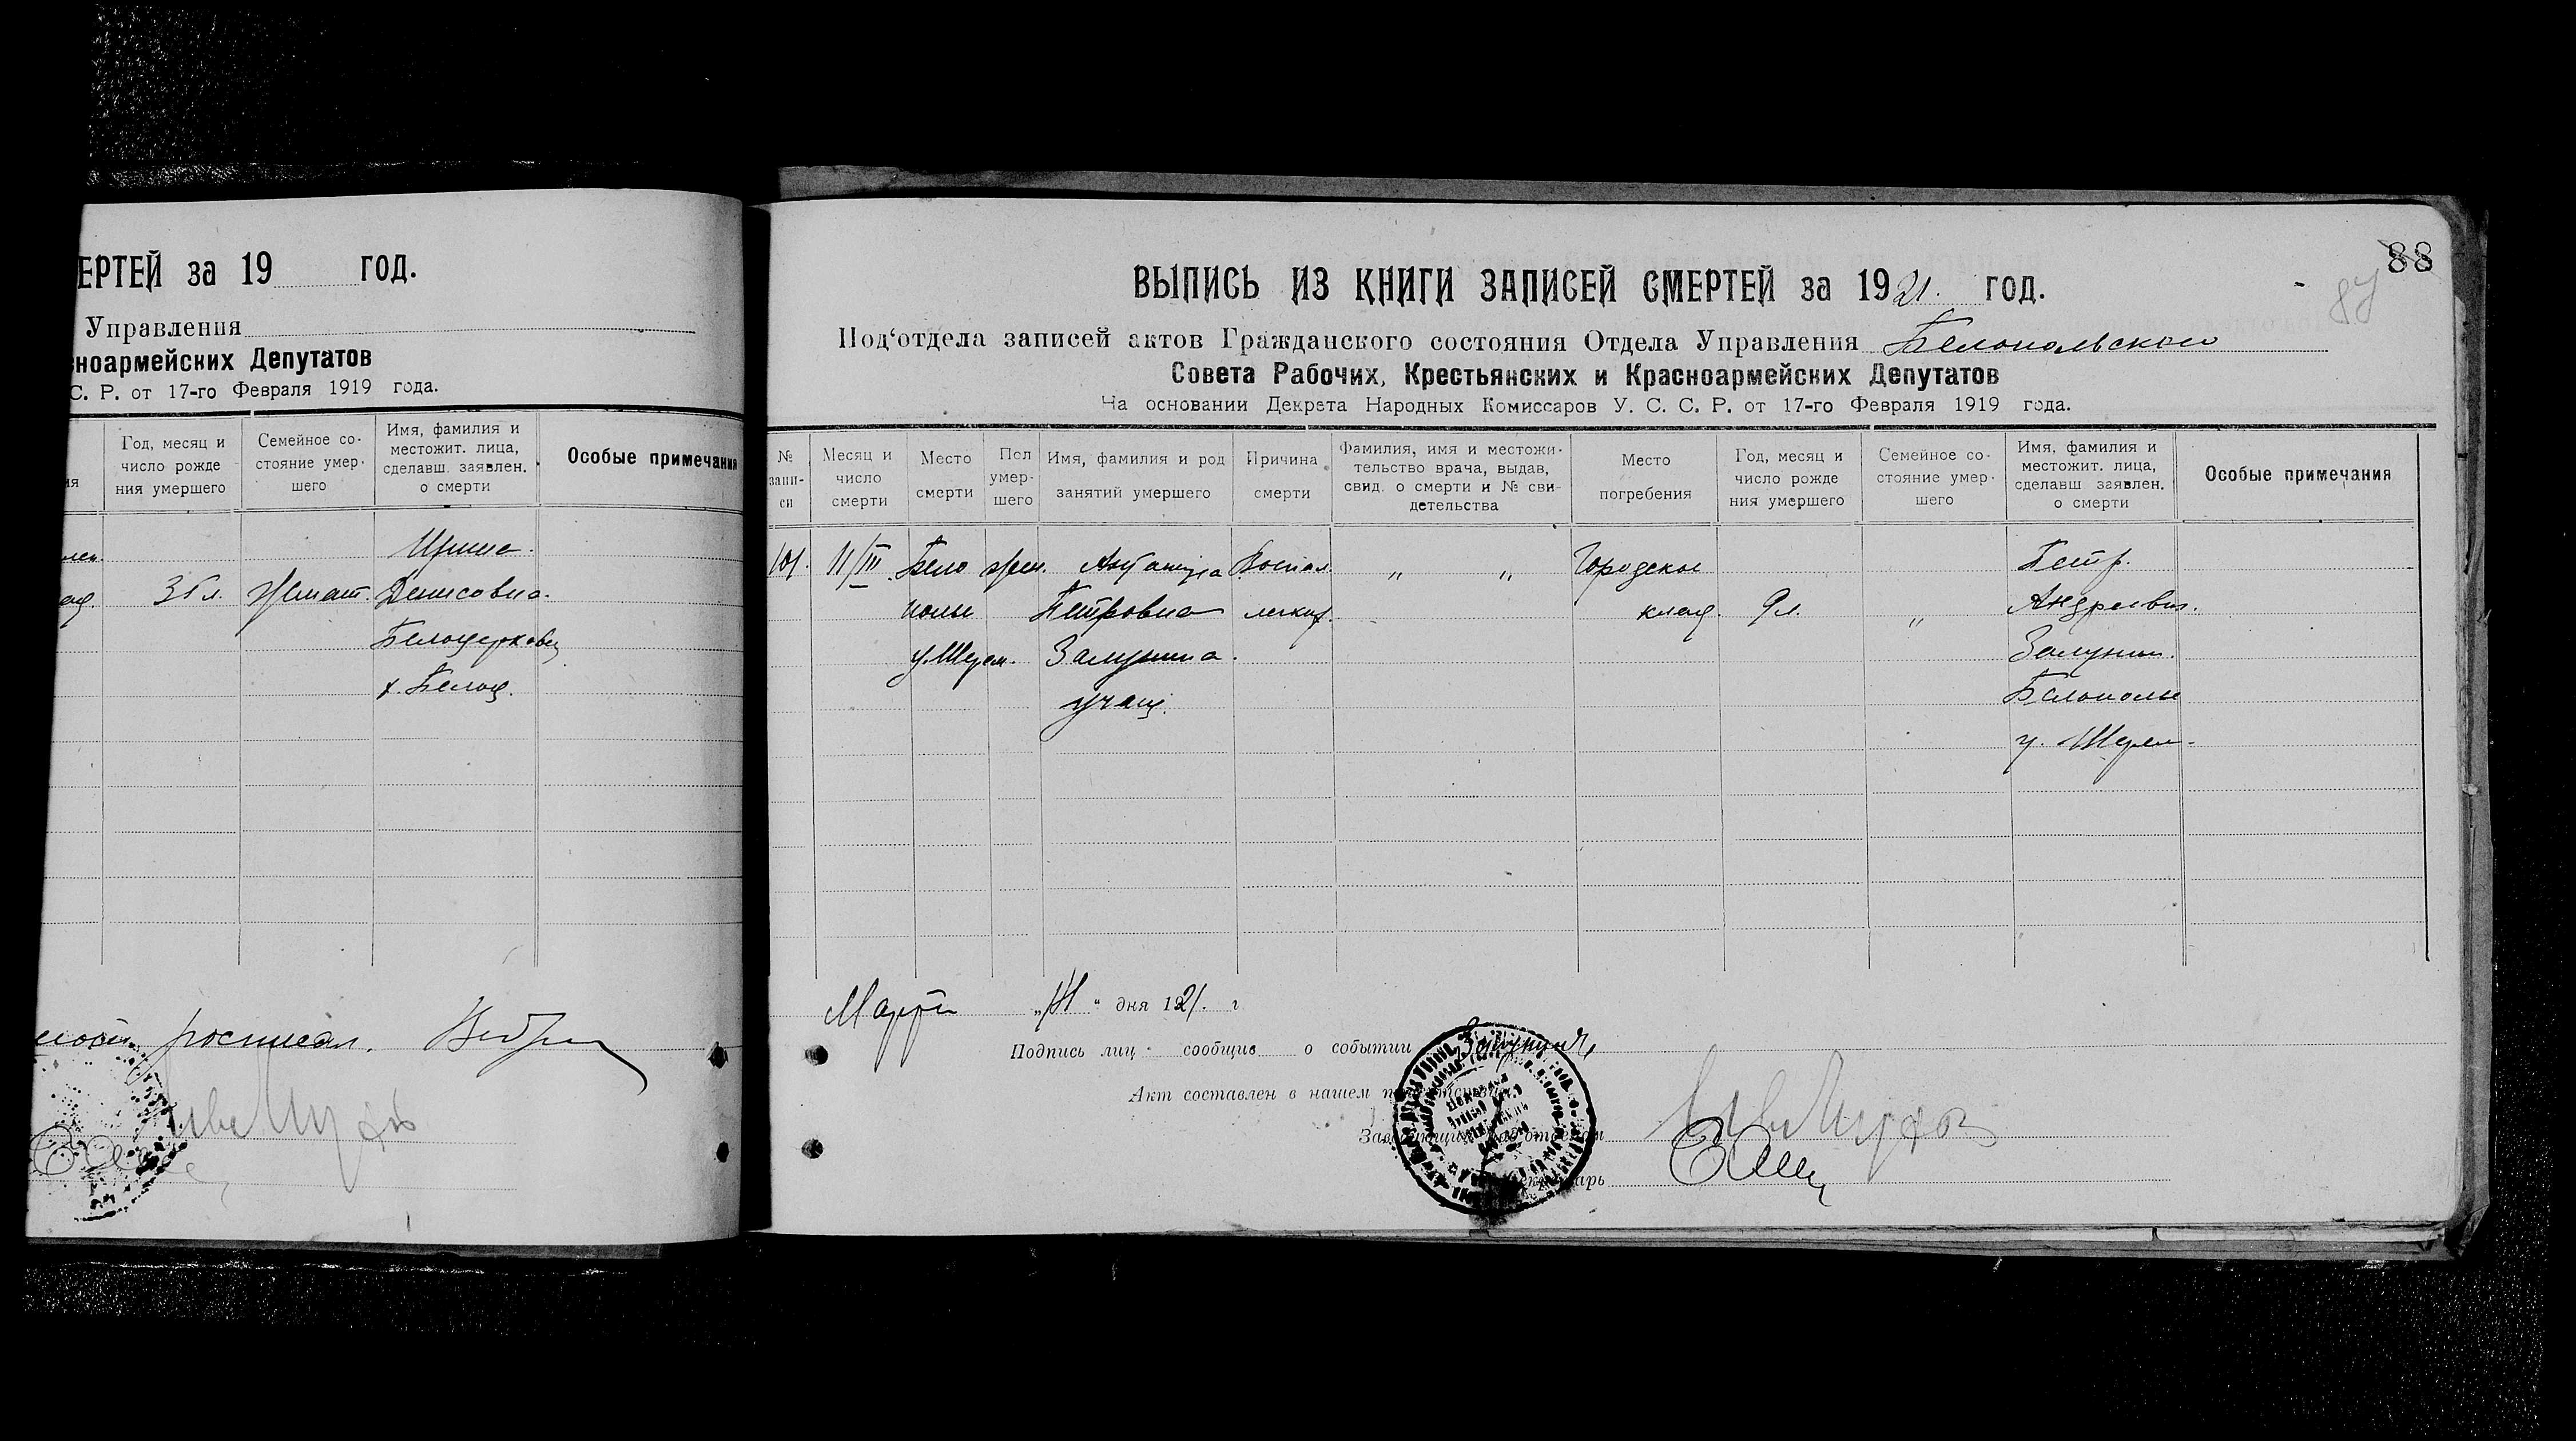 ЕРТЕЙ за 19 год.
Управления
сноармейских Депутатов
С. Р. от 17-го Февраля 1919 года.
ия
Год, месяц и число рожде ния умершего
Семейное со- стояние умер- шего
Имя, фамилия и местожит. лица, сделавш. заявлен. о смерти
Особые примечания
Денисовна.
Белоцерковец
х. Белоц.
росписал.
88
87
ВЫПИСЬ ИЗ КНИГИ ЗАПИСЕЙ СМЕРТЕЙ за 1921. год.
Под‘отдела записей актов Гражданского состояния Отдела Управления Белопольского
Совета Рабочих, Крестьянских и Красноармейских Депутатов
На основании Декрета Народных Комиссаров У. С. С. Р. от 17-го Февраля 1919 года.
№ запи- си
Месяц и число смерти
Место смерти
Пол умер- шего
Имя, фамилия и род занятий умершего
Причина смерти
Фамилия, имя и местожи- тельство врача, выдав, свид. о смерти и № сви- детельства
Место погребения
Год, месяц и число рожде ния умершего
Семейное со- стояние умер- шего
Имя, фамилия и местожит. лица, сделавш заявлен. о смерти
Особые примечания
101. 11/III Бело жен. Воспал. „ „ Городское Петр.
полье Петровна легких. клад. 9 л. „ Андреевич.
Залунина. Залунин.
учащ. Белополье
Марта „11“ дня 1921. г
Подпись лиц сообщив о событии Залунин
Акт составлен в нашем